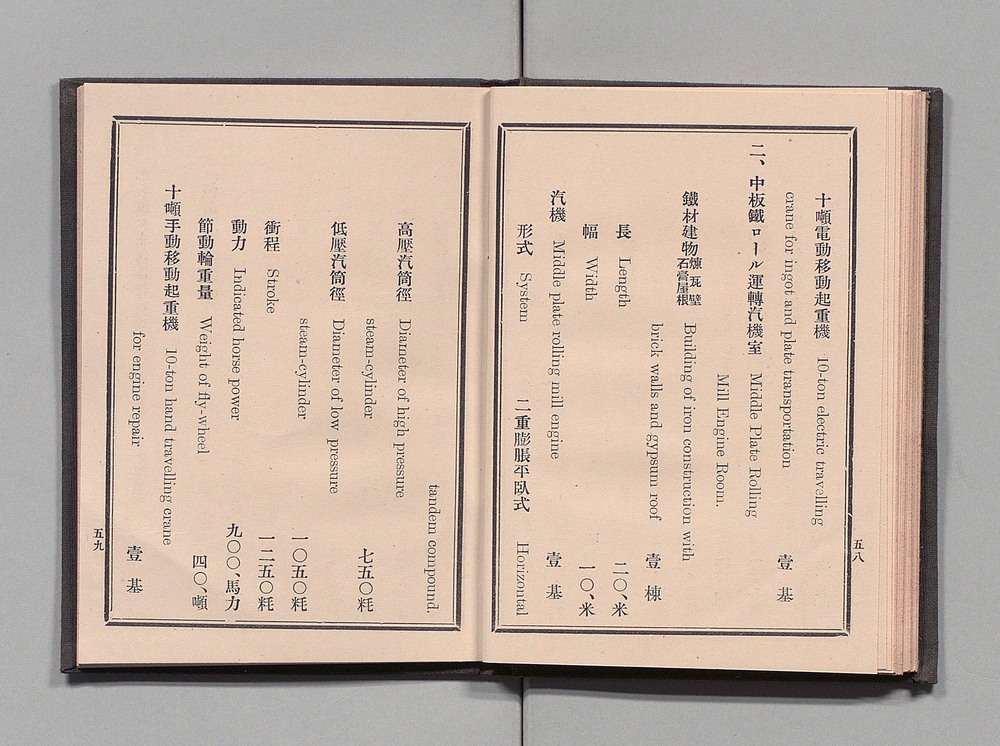 十噸電動移動起重機 10-ton electric travelling
crane for ingot and plate transportation 壹基
二、中板鐵ロール運轉汽機室 Middle Plate Rolling
Mill Engine Room.
鐵材建物煉瓦壁石膏屋根 Building of iron construction with
brick walls and gypsum roof 壹棟
長 Length 二〇、米
幅 Width 一〇、米
汽機 Middle plate rolling mill engine 壹基
形式 System 二重膨脹平臥式 Horizontal
五八
tandem compound.
高壓汽筒徑 Diameter of high pressure
steam-cylinder 七五〇粍
低壓汽筒徑 Diameter of low pressure
steam-cylinder 一〇五〇粍
衝程 Stroke 一二五〇粍
動力 Indicated horse power 九〇〇、馬力
節動輪重量 Weight of fly-wheel 四〇、噸
十噸手動移動起重機 10-ton hand travelling crane
for engine repair 壹基
五九